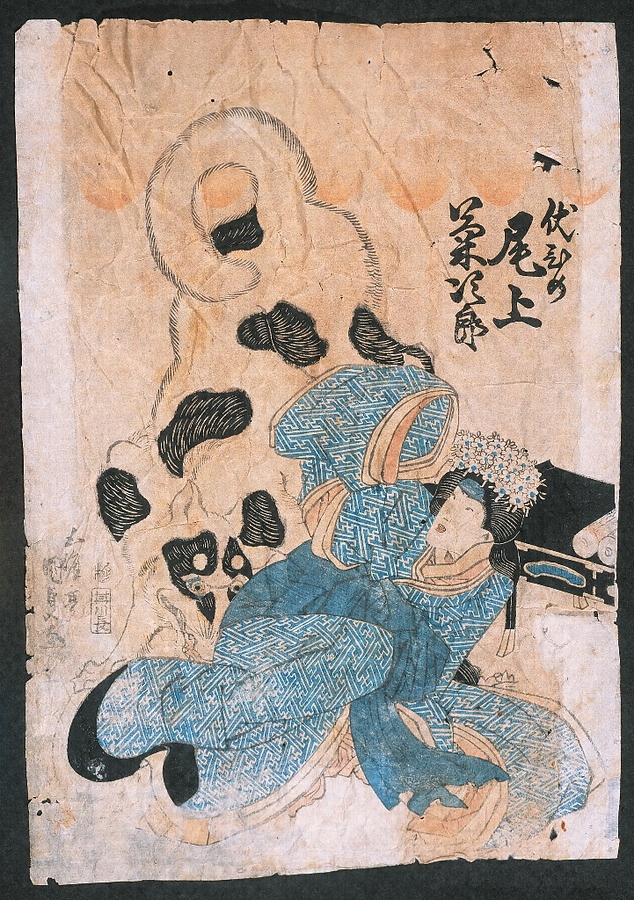 伏ひめ
尾上
菊次郎
五渡亭
国貞画